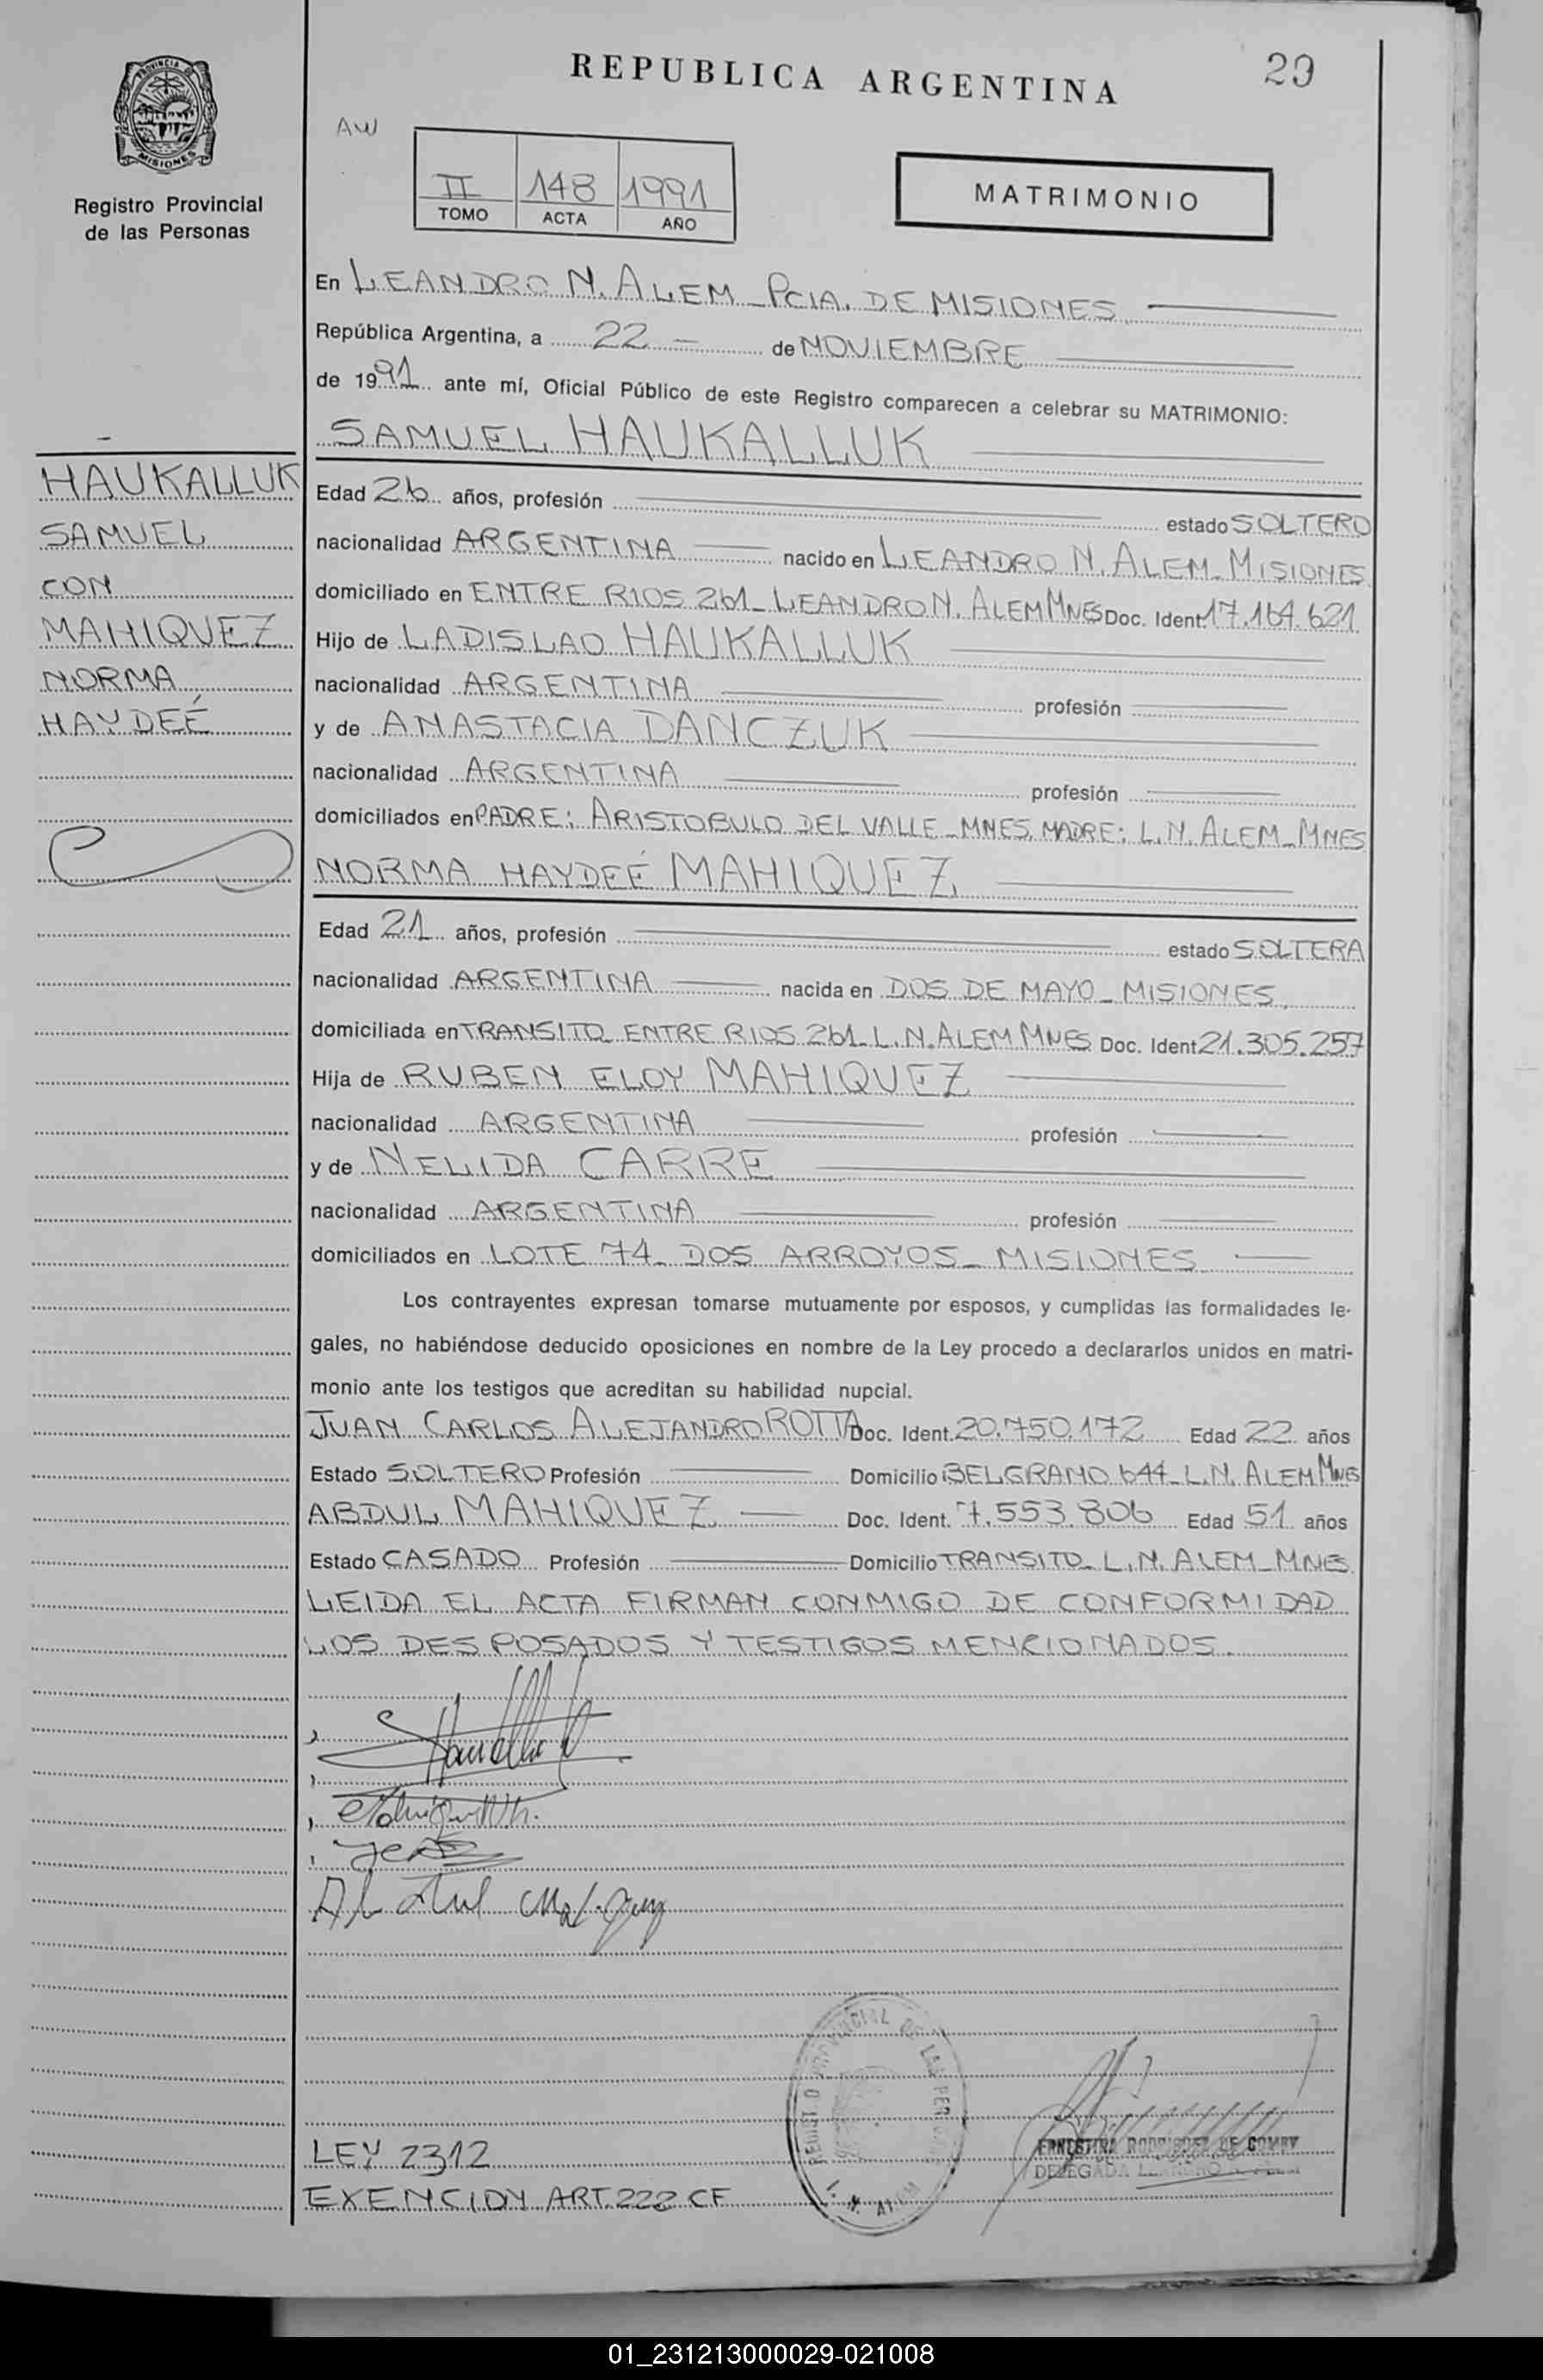 REPUBLICA ARGENTINA
29
PROVINCIA DE
MISIONES
Registro Provincial
de las Personas
AW
II 148 1991
TOMO ACTA AÑO
MATRIMONIO
En LEANDRO N. ALEM - PCIA. DE MISIONES
República Argentina, a 22 - de NOVIEMBRE
de 1991 ante mí, Oficial Público de este Registro comparecen a celebrar su MATRIMONIO:
SAMUEL HAUKALLUK
HAUKALLUK
SAMUEL
CON
MAHIQUEZ
NORMA
HAYDEÉ
Edad 26 años, profesión estado SOLTERO
nacionalidad ARGENTINA nacido en LEANDRO N. ALEM - MISIONES
domiciliado en ENTRE RIOS 261 - LEANDRO N. ALEM MNES Doc. Ident. 17.164.621
Hijo de LADISLAO HAUKALLUK
nacionalidad ARGENTINA profesión
y de ANASTACIA DANCZUK
nacionalidad ARGENTINA profesión
domiciliados en PADRE: ARISTOBULO DEL VALLE - MNES. MADRE: L.N. ALEM - MNES
NORMA HAYDEÉ MAHIQUEZ
Edad 21 años, profesión estado SOLTERA
nacionalidad ARGENTINA nacida en DOS DE MAYO - MISIONES
domiciliada en TRANSITO ENTRE RIOS 261 - L.N. ALEM MNES Doc. Ident. 21.305.257
Hija de RUBEN ELOY MAHIQUEZ
nacionalidad ARGENTINA profesión
y de NELIDA CARRE
nacionalidad ARGENTINA profesión
domiciliados en LOTE 74 - DOS ARROYOS - MISIONES
Los contrayentes expresan tomarse mutuamente por esposos, y cumplidas las formalidades le-
gales, no habiéndose deducido oposiciones en nombre de la Ley procedo a declararlos unidos en matri-
monio ante los testigos que acreditan su habilidad nupcial.
JUAN CARLOS ALEJANDRO ROTTA Doc. Ident. 20.750.172 Edad 22 años
Estado SOLTERO Profesión Domicilio BELGRANO 644 - L.N. ALEM MNES
ABDUL MAHIQUEZ Doc. Ident. 7.553.806 Edad 51 años
Estado CASADO Profesión Domicilio TRANSITO - L.N. ALEM - MNES
LEIDA EL ACTA FIRMAN CONMIGO DE CONFORMIDAD
LOS DESPOSADOS Y TESTIGOS MENCIONADOS.
REGISTRO PROVINCIAL DE LAS PERSONAS
L. N. ALEM
ERNESTINA RODRIGUEZ DE
DELEGADA LEANDRO N. ALEM
LEY 2312
EXENCION ART. 222 CF
01_231213000029-021008